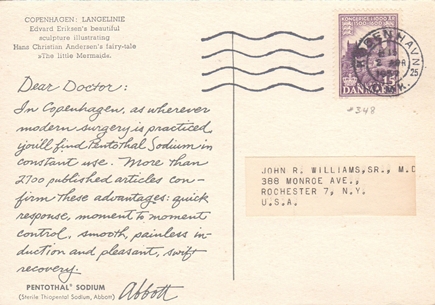 COPENHAGEN: LANGELINIE
Edvard Eriksen's beautiful
sculpture illustrating
Hans Christian Andersen's fairy-tale
»The little Mermaid«.
Dear Doctor:
In Copenhagen, as wherever
modern surgery is practiced,
you'll find Pentothal Sodium in
constant use. More than
2700 published articles con-
firm these advantages: quick
response, moment to moment
control, smooth, painless in-
duction and pleasant, swift
recovery.
PENTOTHAL® SODIUM
(Sterile Thiopental Sodium, Abbott)
Abbott
KONGERIGE I 1000 ÅR
KØBENHAVN
1957
25
DANMARK
15
#348
JOHN R. WILLIAMS,SR., M.D
388 MONROE AVE.,
ROCHESTER 7, N.Y.
U.S.A.